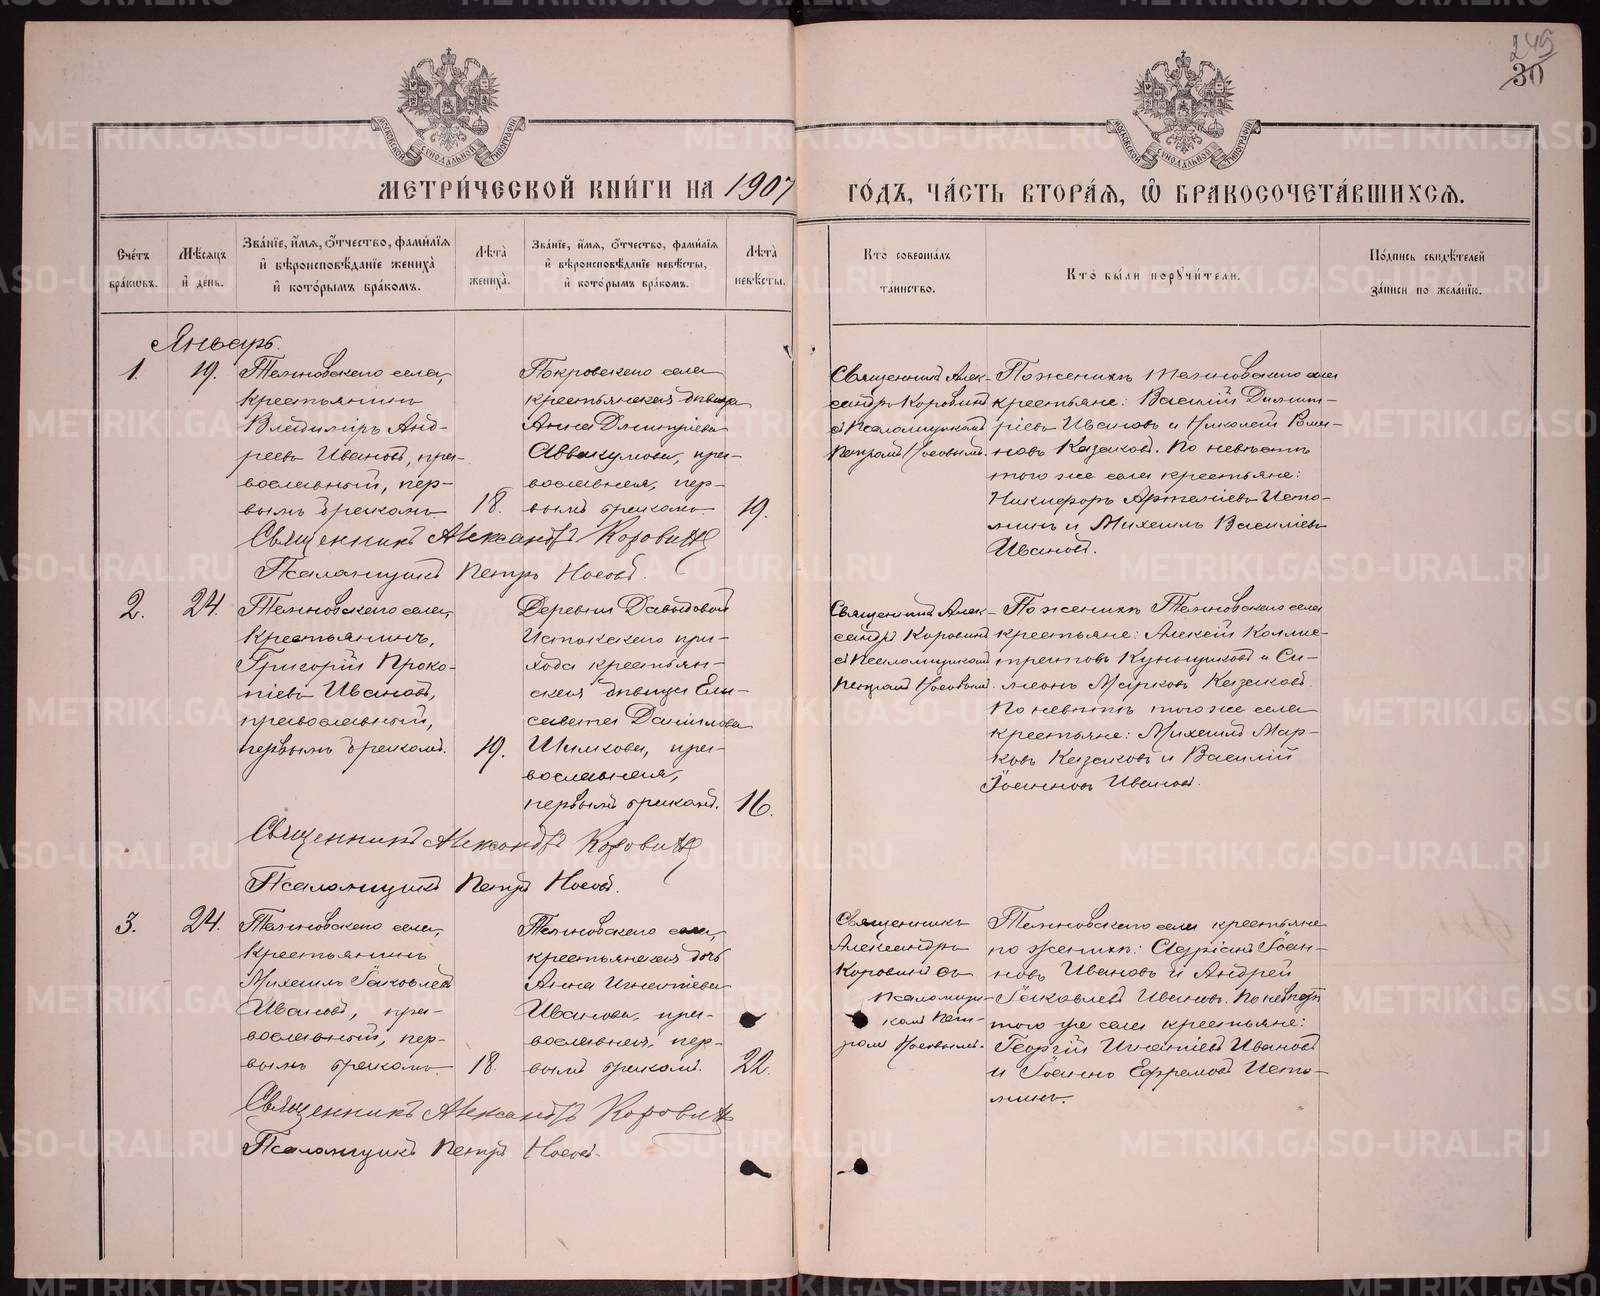 249
30
МЕТРИ́ЧЕСКОЙ КНИ́ГИ НА 1907 ГО́ДЪ, ЧА́СТЬ ВТОРА́Я, Ѿ БРАКОСОЧЕТА́ВШИХСЯ.
Сче́тъ бра́ковъ.
Мѣ́сяцъ и҆ день.
Зва́нїе, и҆́мя, о҆́тчество, фами́лїя и҆ вѣроисповѣ́данїе жениха̀ и҆ кото́рымъ бра́комъ.
Лѣта̀ жениха̀.
Зва́нїе, и҆́мя, о҆́тчество, фами́лїя и҆ вѣроисповѣ́данїе невѣ́сты, и҆ кото́рымъ бра́комъ.
Лѣта̀ невѣ́сты.
Кто̀ соверша́лъ та́инство.
Кто̀ бы́ли порꙋчи́тели.
По́дпись свидѣ́телей за́писи по жела́нїю.
Январь.
1.
19.
Темновскаго села,
крестьянинъ
Владиміръ Анд-
реевъ Ивановъ, пра-
вославный, пер-
вымъ бракомъ
18.
Покровскаго села
крестьянская дѣвица
Анна Дмитріева
Аввакумова, пра-
вославная, пер-
вымъ бракомъ.
19.
Священникъ Алек-
сандръ Коровинъ
съ Псаломщикомъ
Петромъ Носовымъ.
По женихѣ Темновскаго села
крестьяне: Василій Димит-
ріевъ Ивановъ и Николай Рома-
новъ Казаковъ. По невѣстѣ
того же села крестьяне:
Никифоръ Артеміевъ Исто-
минъ и Михаилъ Василіевъ
Ивановъ.
Священникъ Александръ Коровинъ
Псаломщикъ Петръ Носовъ.
2.
24.
Темновскаго села,
крестьянинъ,
Григорій Проко-
піевъ Ивановъ,
православный,
первымъ бракомъ.
19.
Деревни Давыдовой
Истокскаго при-
хода крестьян-
ская дѣвица Ели-
савета Даніилова
Шимкова, пра-
вославная,
первымъ бракомъ.
16.
Священникъ Алек-
сандръ Коровинъ
съ Псаломщикомъ
Петромъ Носовымъ.
По женихѣ Темновскаго села
крестьяне: Алексій
и Си-
меонъ Марковъ Казаковъ.
По невѣстѣ того же села
крестьяне: Михаилъ Мар-
ковъ Казаковъ и Василій
Іоанновъ Ивановъ.
Священникъ Александръ Коровинъ
Псаломщикъ Петръ Носовъ.
3.
24.
Темновскаго села,
крестьянинъ
Михаилъ Іаковлевъ
Ивановъ, пра-
вославный, пер-
вымъ бракомъ.
18.
Темновскаго села,
крестьянская дочь
Анна Игнатіева
Иванова, пра-
вославная, пер-
вымъ бракомъ.
22.
Священникъ
Александръ
Коровинъ съ
псаломщи-
комъ Пет-
ромъ Носовымъ.
Темновскаго села крестьяне
по женихѣ: Адріанъ Іоан-
новъ Ивановъ и Андрей
Іаковлевъ Ивановъ. По невѣстѣ
того же села крестьяне:
Георгій Игнатіевъ Ивановъ
и Іоаннъ Ефремовъ Исто-
минъ.
Священникъ Александръ Коровинъ
Псаломщикъ Петръ Носовъ.